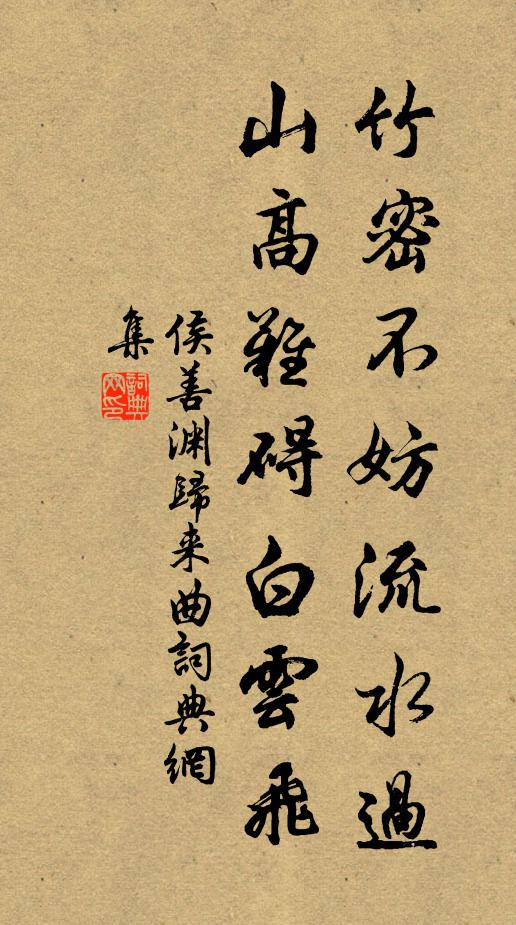 竹密不妨流水過
山高難碍白雲飛
侯善淵歸来曲詞典網
集
詞典網印